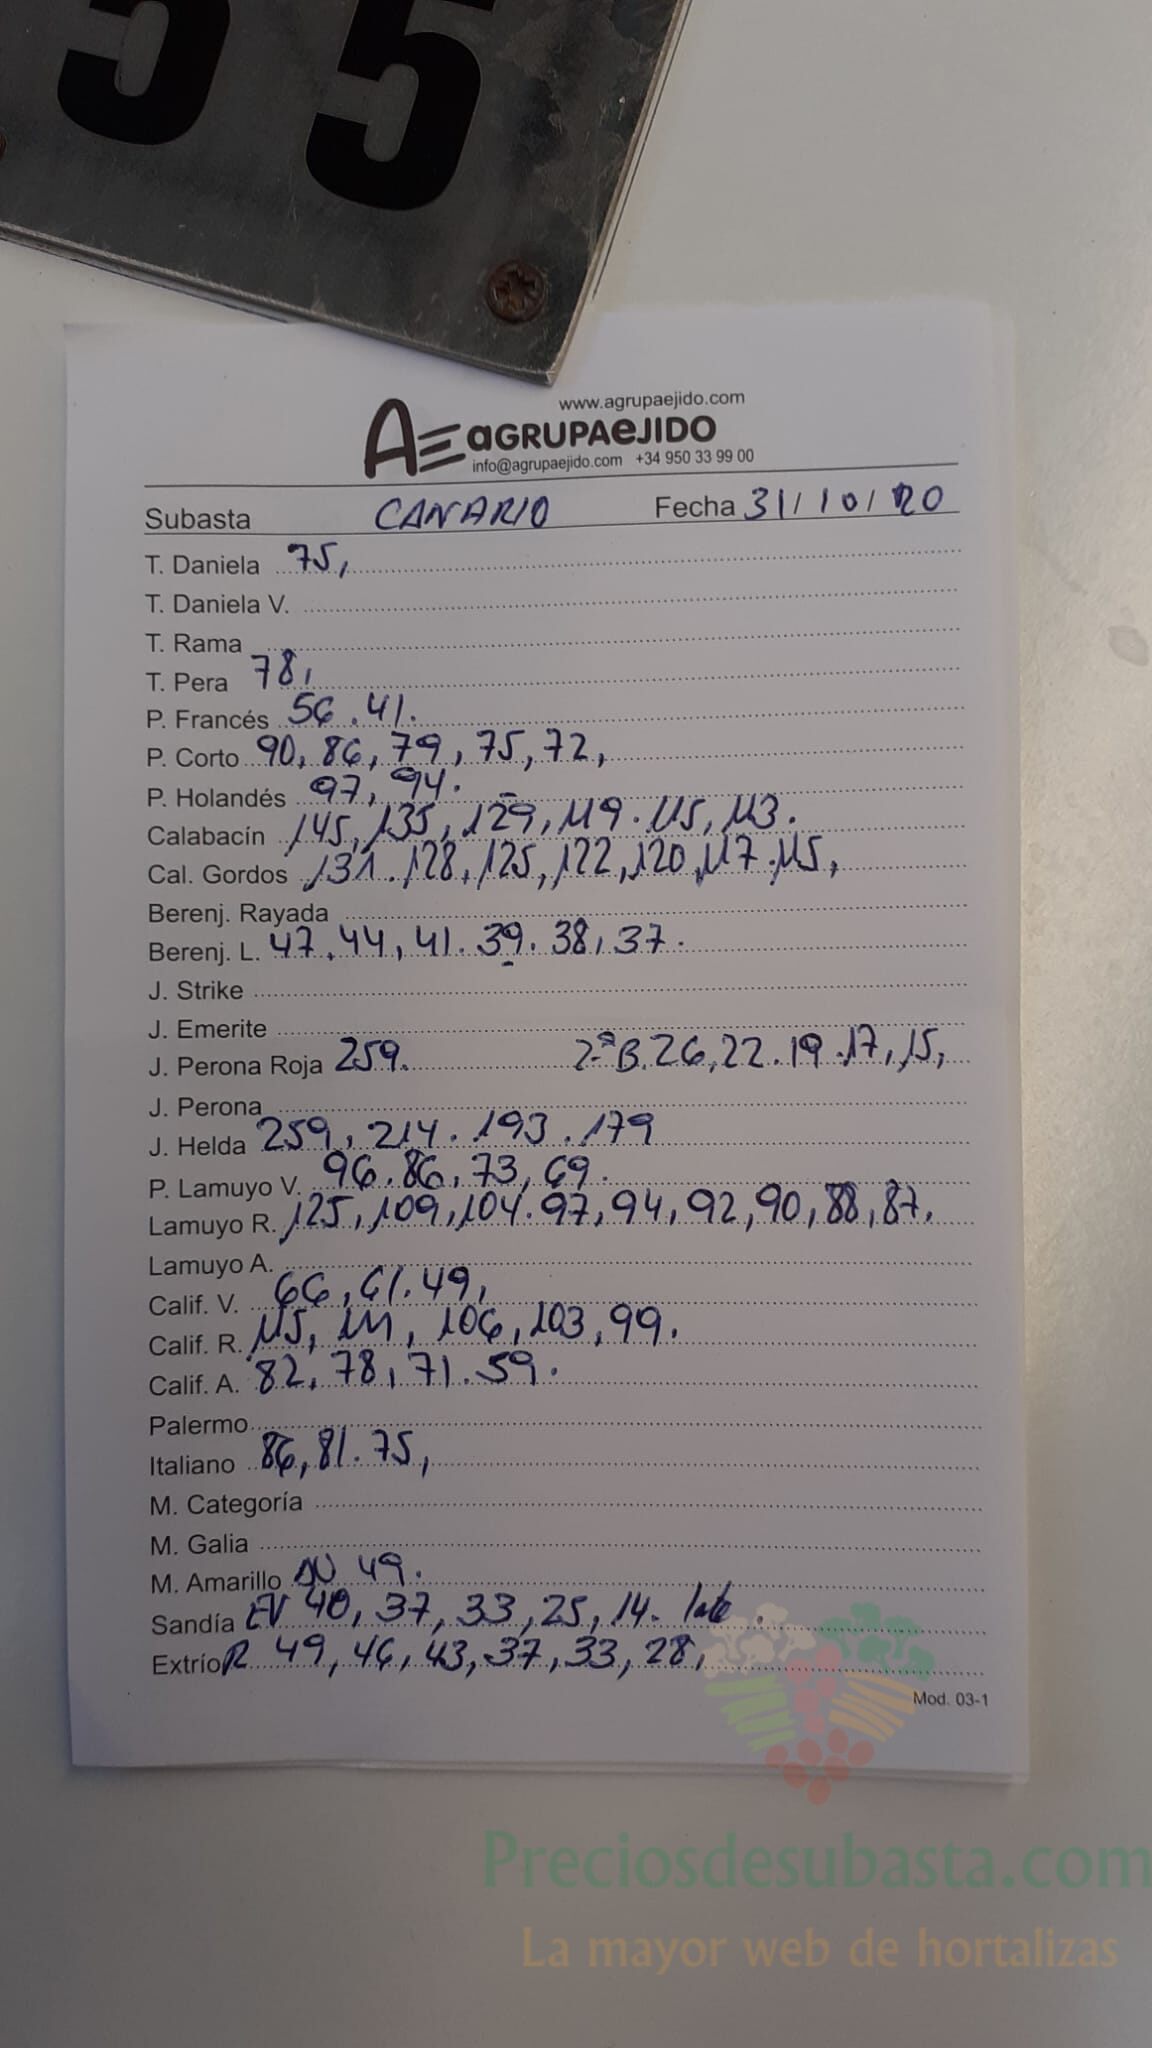 55
www.agrupaejido.com
AE aGRUPAeJIDO
info@agrupaejido.com +34 950 33 99 00
Subasta CANARIO Fecha 31/10/20
T. Daniela 75,
T. Daniela V.
T. Rama
T. Pera 78,
P. Francés 56. 41.
P. Corto 90, 86, 79, 75, 72,
P. Holandés 97, 94.
Calabacín 145, 135, 129, 119. 115, 113.
Cal. Gordos 131. 128, 125, 122, 120, 117. 115,
Berenj. Rayada
Berenj. L. 47. 44, 41. 39. 38, 37.
J. Strike
J. Emerite
J. Perona Roja 259. 2ªB. 26, 22. 19. 17, 15,
J. Perona
J. Helda 259, 214. 193. 179
P. Lamuyo V. 96. 86, 73, 69.
Lamuyo R. 125, 109, 104. 97, 94, 92, 90, 88, 87,
Lamuyo A.
Calif. V. 66, 61. 49,
Calif. R. 115, 111, 106, 103, 99.
Calif. A. 82, 78, 71. 59.
Palermo
Italiano 86, 81. 75,
M. Categoría
M. Galia
M. Amarillo 49.
Sandía 40, 37, 33, 25, 14.
Extrío R 49, 46, 43, 37, 33, 28,
Mod. 03-1
Preciosdesubasta.com
La mayor web de hortalizas